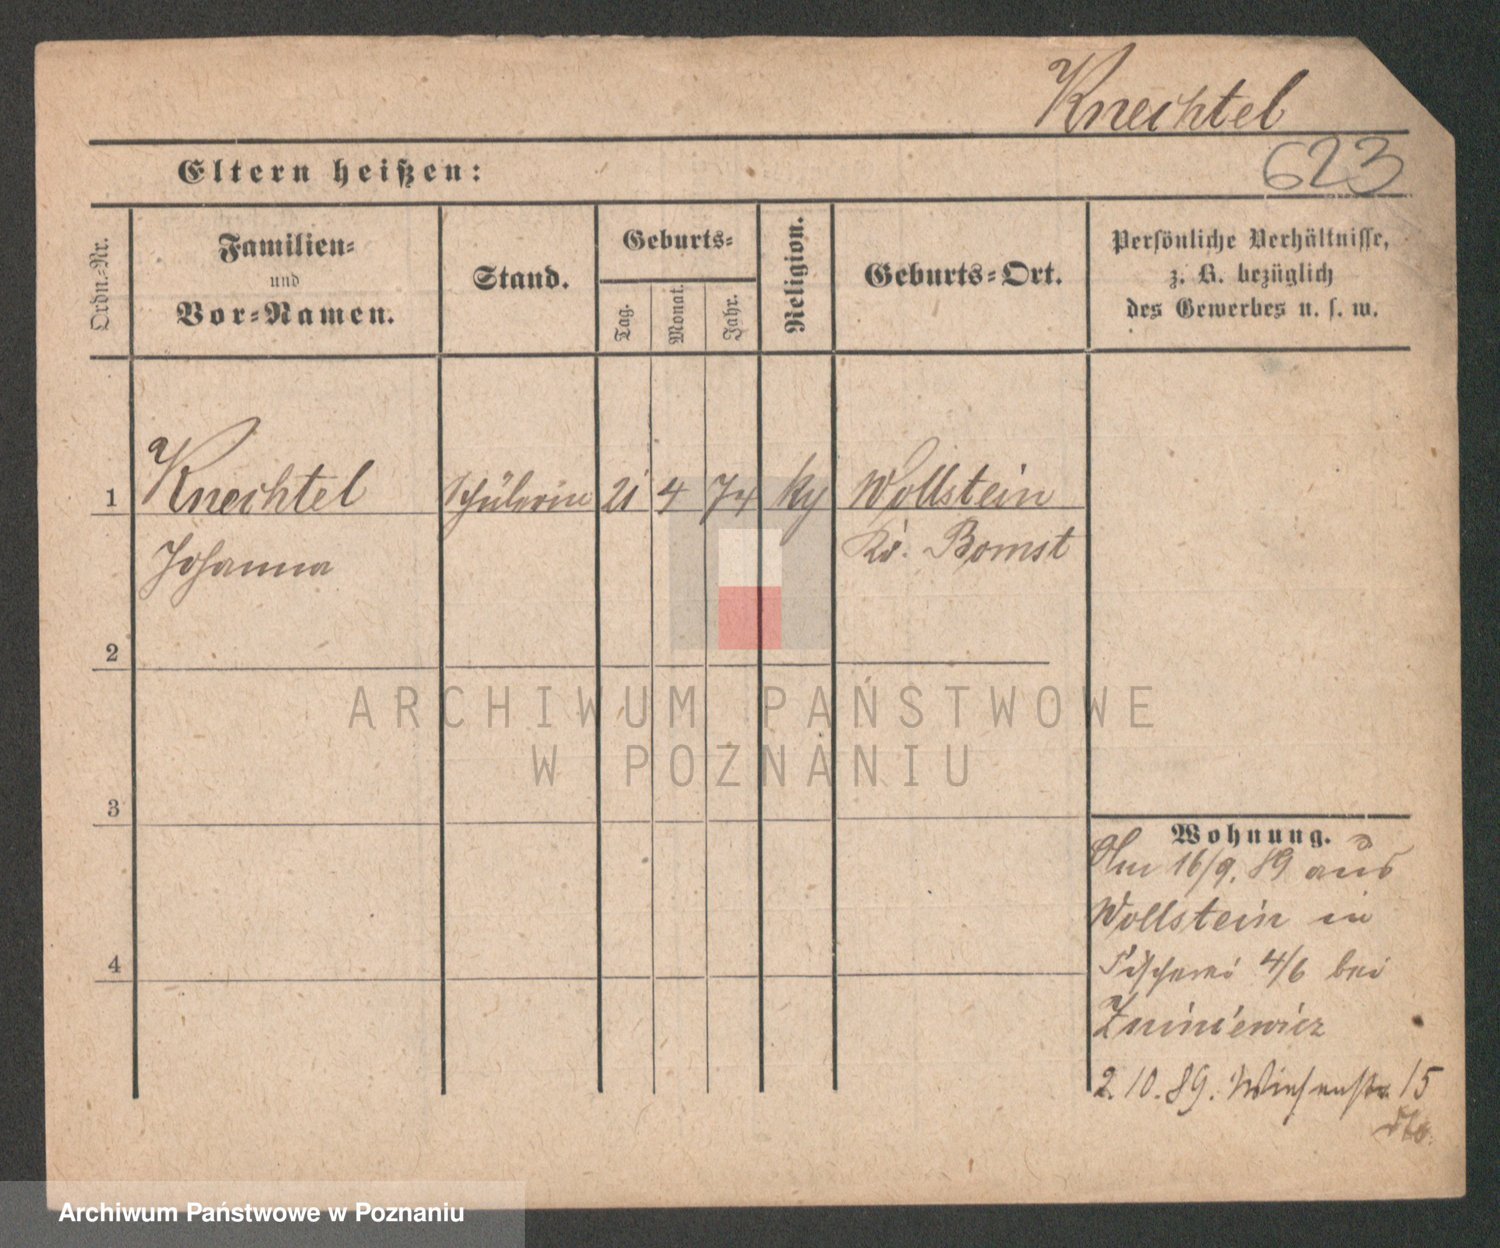 Knechtel
623
Eltern heißen:
Ordn.-Nr.
Familien-
und
Vor-Namen.
Stand.
Geburts-
Tag.
Monat.
Jahr.
Religion.
Geburts-Ort.
Persönliche Verhältnisse,
z. B. bezüglich
des Gewerbes u. s. w.
1 Knechtel Schülerin 21 4 74 Wollstein
Johanna Kr. Bomst
2
3
4
ARCHIWUM PAŃSTWOWE
W POZNANIU
Wohnung.
Am 16/9. 89 aus
Wollstein in
Fischerei 4/6 bei
Zminiewicz
2.10.89. Wiesenstr. 15
dto.
Archiwum Państwowe w Poznaniu